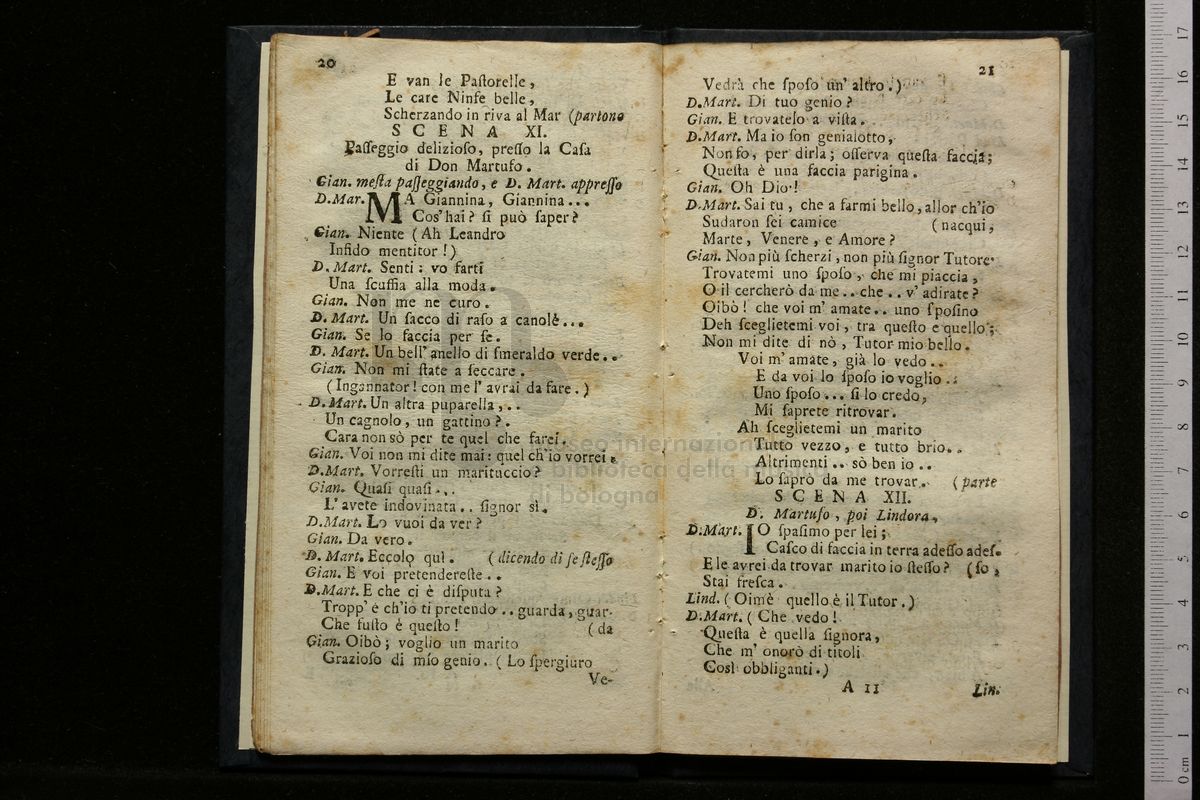 20
E van le Paſtorelle,
Le care Ninfe belle,
Scherzando in riva al Mar (partono
SCENA XI.
Paſſeggio delizioſo, preſſo la Caſa
di Don Martufo.
Gian. meſta paſſeggiando, e D. Mart. appreſſo
D.Mar. MA Giannina, Giannina...
Cos' hai? ſi può ſaper?
Gian. Niente (Ah Leandro
Infido mentitor!)
D. Mart. Senti: vo farti
Una ſcuffia alla moda.
Gian. Non me ne curo.
D. Mart. Un ſacco di raſo a canolè...
Gian. Se lo faccia per ſe.
D. Mart. Un bell' anello di ſmeraldo verde..
Gian. Non mi ſtate a ſeccare.
(Ingannator! con me l' avrai da fare.)
D. Mart. Un altra puparella,..
Un cagnolo, un gattino?.
Cara non sò per te quel che farei.
Gian. Voi non mi dite mai: quel ch'io vorrei.
D.Mart. Vorreſti un marituccio?
Gian. Quaſi quaſi...
L' avete indovinata.. ſignor sì.
D.Mart. Lo vuoi da ver?
Gian. Da vero.
D. Mart. Eccolo quì. (dicendo di ſe ſteſſo
Gian. E voi pretendereſte..
D.Mart. E che ci è diſputa?
Tropp' è ch'io ti pretendo.. guarda, guar-
Che fuſto è queſto! (da
Gian. Oibò; voglio un marito
Grazioſo di mio genio. (Lo ſpergiuro
Ve-
21
Vedrà che ſpoſo un' altro.)
D.Mart. Di tuo genio?
Gian. E trovatelo a viſta.
D.Mart. Ma io ſon genialotto,
Non ſo, per dirla; oſſerva queſta faccia;
Queſta è una faccia parigina.
Gian. Oh Dio!
D.Mart. Sai tu, che a farmi bello, allor ch'io
Sudaron ſei camice (nacqui,
Marte, Venere, e Amore?
Gian. Non più ſcherzi, non più ſignor Tutore
Trovatemi uno ſpoſo, che mi piaccia,
O il cercherò da me.. che.. v' adirate?
Oibò! che voi m' amate.. uno ſpoſino
Deh ſceglietemi voi, tra queſto e quello;
Non mi dite di nò, Tutor mio bello.
Voi m' amate, già lo vedo..
E da voi lo ſpoſo io voglio..
Uno ſpoſo... ſi lo credo,
Mi ſaprete ritrovar.
Ah ſceglietemi un marito
Tutto vezzo, e tutto brio..
Altrimenti.. sò ben io..
Lo ſaprò da me trovar. (parte
SCENA XII.
D. Martufo, poi Lindora,
D.Mart. IO ſpaſimo per lei;
Caſco di faccia in terra adeſſo adeſ-
E le avrei da trovar marito io ſteſſo? (ſo,
Stai freſca.
Lind. (Oimè quello è il Tutor.)
D.Mart. (Che vedo!
Queſta è quella ſignora,
Che m' onorò di titoli
Così obbliganti.)
A 11
Lin.
museo internazionale
e biblioteca della musica
di bologna
0 cm 1 2 3 4 5 6 7 8 9 10 11 12 13 14 15 16 17